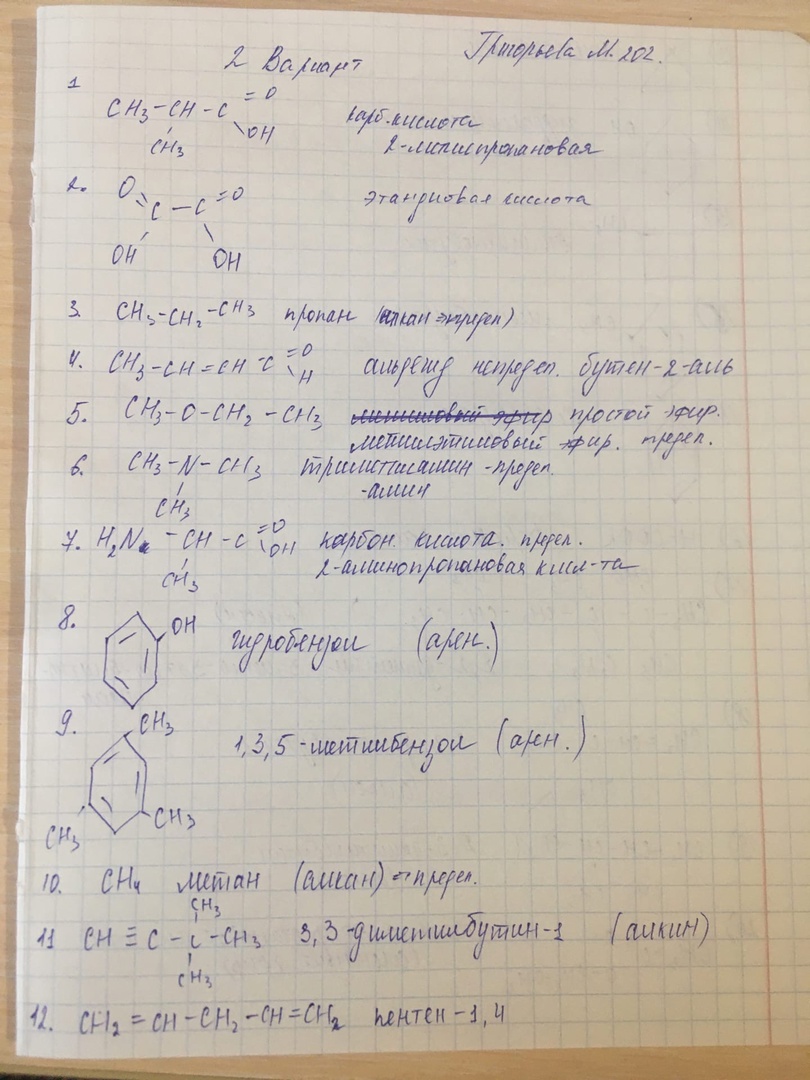 2 Вариант Григорьева М. 202.
1
CH3-CH-C =O карб. кислота
CH3 \OH 2-метилпропановая
2. O C - C =O этандиовая кислота
OH OH
3. CH3-CH2-CH3 пропан (алкан предел)
4. CH3-CH=CH-C =O H альдегид непредел. бутен-2-аль
5. CH3-O-CH2-CH3 простой эфир.
метилэтиловый эфир. предел.
6. CH3-N-CH3 триметиламин - предел.
CH3 -амин
7. H2N -CH-C =O OH карбон. кислота. предел.
CH3 2-аминопропановая кисл-та
8. OH гидробензол (арен.)
9. CH3 1,3,5-метилбензол (арен.)
CH3 CH3
10. CH4 метан (алкан) - предел.
CH3
11 CH≡C-C-CH3 3,3-диметилбутин-1 (алкин)
CH3
12. CH2=CH-CH2-CH=CH2 пентен-1,4